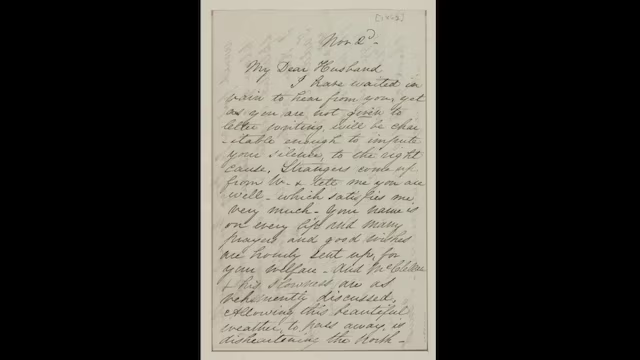 [1862]
Nov 2d.
My Dear Husband
I have waited in
vain to hear from you, yet
as you are not given to
letter writing, will be char
-itable enough to impute
your silence, to the right
cause. Strangers come up
from W- & tell me you are
well - which satisfies me
very much - Your name is
on every lip and many
prayers and good wishes
are hourly sent up, for
your welfare - And McClellan
& his slowness are as
vehemently discussed.
Allowing this beautiful
weather, to pass away, is
disheartening the North -